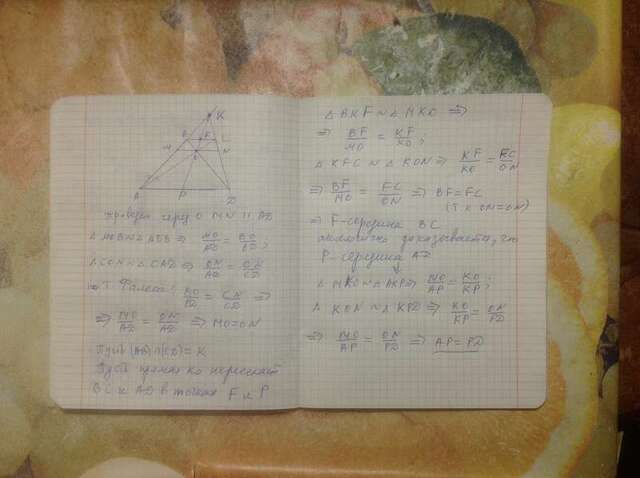 K
B F C
M O N
A P D
Проведем через O MN || AD
△MOB∾△ADB ⇒ MO/AD = BO/BD;
△CON∾△CAD ⇒ ON/AD = CN/CD
по т. Фалеса: BO/BD = CN/CD ⇒
⇒ MO/AD = ON/AD ⇒ MO=ON
Пусть (AB)∩(CD) = K
Пусть прямая KO пересекает
BC и AD в точках F и P
△BKF ∾ △MKO ⇒
⇒ BF/MO = KF/KO;
△KFC ∾ △KON ⇒ KF/KO = FC/ON
⇒ BF/MO = FC/ON ⇒ BF=FC
(т к ON=ON)
⇒ F-середина BC
аналогично доказывается, что
P-середина AD
△MKO∾△AKP ⇒ MO/AP = KO/KP;
△KON ∾ △KPD ⇒ KO/KP = ON/PD
⇒ MO/AP = ON/PD ⇒ AP=PD